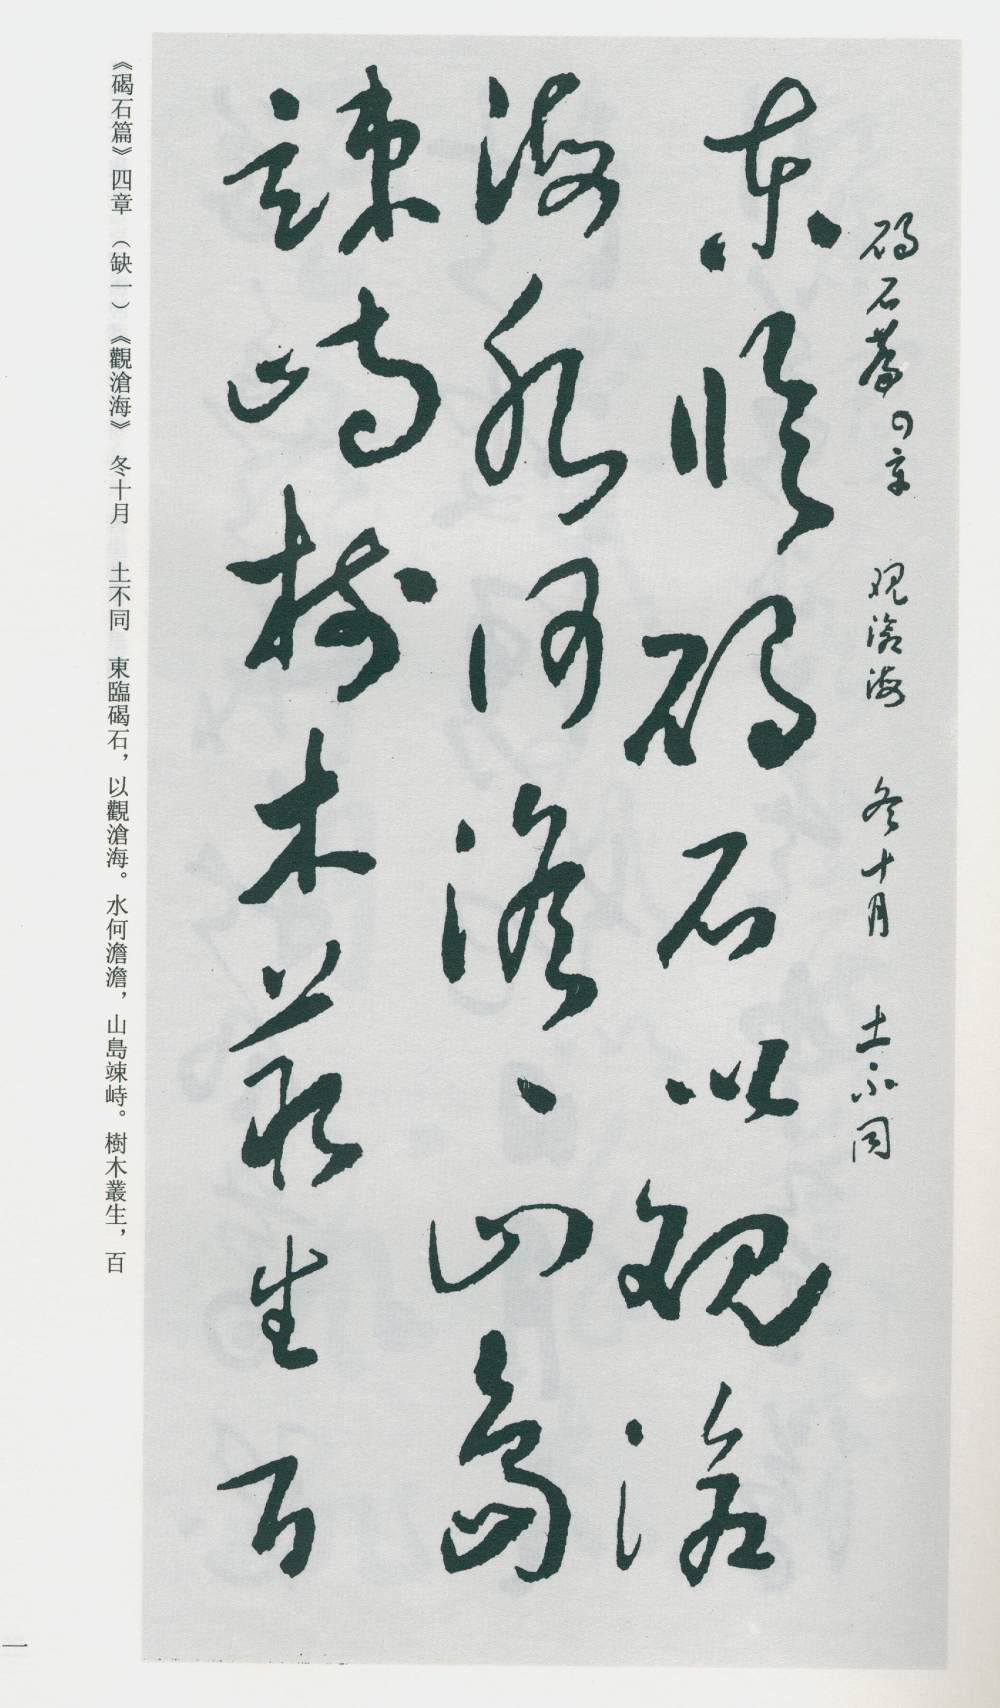 碣石篇四章 观沧海 冬十月 土不同
东临碣石以观沧
海水何澹〻山岛
竦峙树木丛生百
《碣石篇》四章（缺一）《觀滄海》 冬十月 土不同 東臨碣石，以觀滄海。水何澹澹，山島竦峙。樹木叢生，百
一